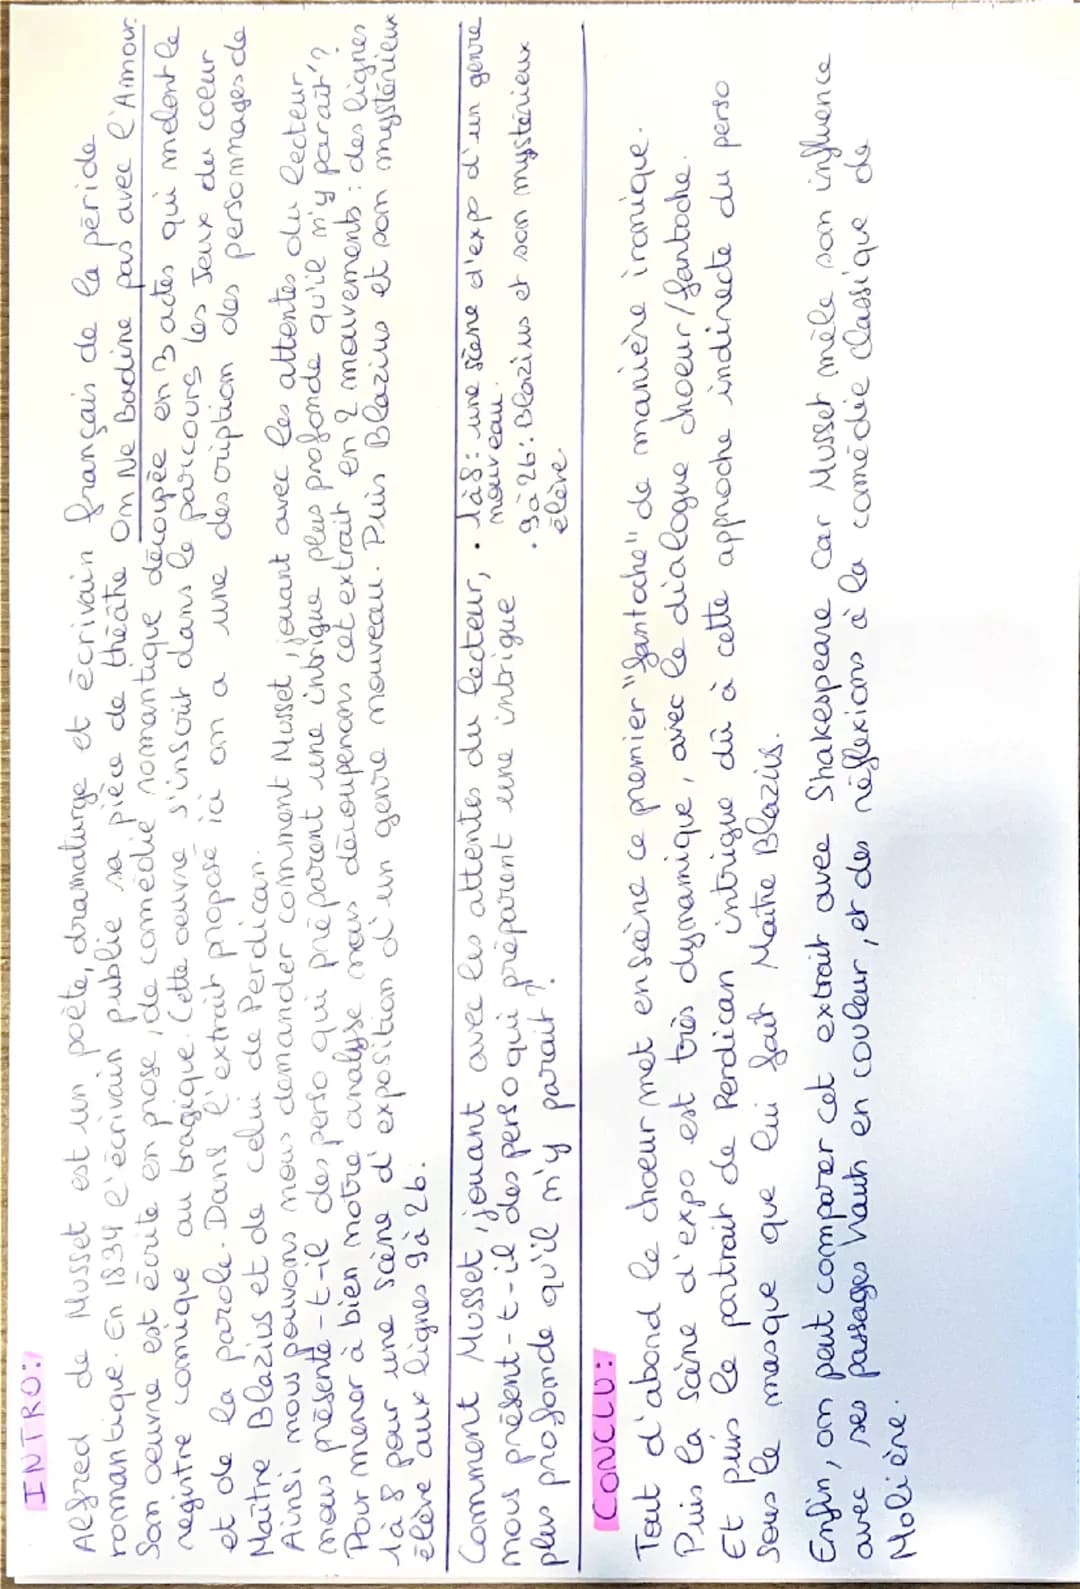 INTRO:
Alfred de Musset est un poète, dramaturge et écrivain français de la péride
romantique. En 1834 l'écrivain publie sa pièce de théâtre On Ne Badine pas avec l'Amour.
Son oeuvre est écrite en prose, de comédie romantique découpée en 3 actes qui mêlent le
registre comique au tragique. Cette oeuvre s'inscrit dans le parcours les Jeux du coeur
et de la parole. Dans l'extrait proposé ici on a une description des personnages de
Maître Blazius et de celui de Perdican.
Ainsi nous pouvons nous demander comment Musset, jouant avec les attentes du lecteur
nous présente-t-il des perso qui préparent une intrigue plus profonde qu'il n'y parait?
Pour mener à bien notre analyse nous découperons cet extrait en 2 mouvements : des lignes
1à 8 pour une scène d'exposition d'un genre nouveau. Puis Blazius et son mystérieux
élève aux lignes 9à 26.
Comment Musset, jouant avec les attentes du lecteur,
nous présent-t-il des perso qui préparent une intrigue
plus profonde qu'il n'y parait?
• 1à8: une scène d'expo d'un genre
nouveau.
• 9à 26: Blazius et son mystérieux
élève.
CONCLU:
Tout d'abord le choeur met en scène ce premier "fantoche" de manière ironique.
Puis la scène d'expo est très dynamique, avec le dialogue choeur/fantoche.
Et puis le portrait de Perdican intrigue dû à cette approche indirecte du perso
sous le masque que lui fait Maître Blazius.
Enfin, on peut comparer cet extrait avec Shakespeare car Musset mêle son influence
avec ses passages haut en couleur, et des réflexions à la comédie classique de
Molière.